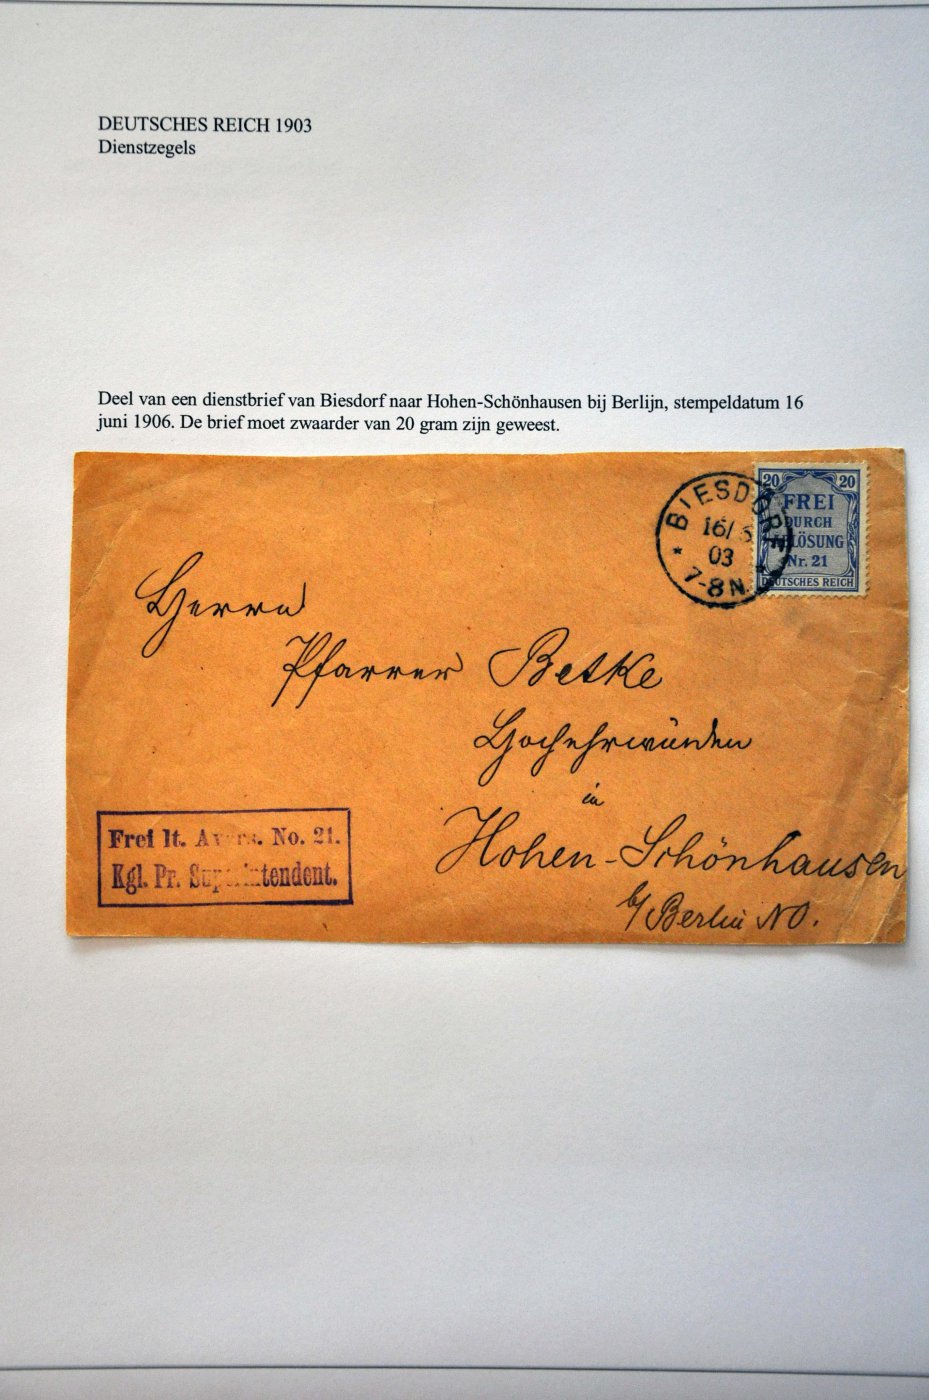 DEUTSCHES REICH 1903
Dienstzegels
Deel van een dienstbrief van Biesdorf naar Hohen-Schönhausen bij Berlijn, stempeldatum 16
juni 1906. De brief moet zwaarder van 20 gram zijn geweest.
BIESDORF
16/5
03
7-8N.
20 20
FREI
DURCH
ABLÖSUNG
Nr. 21
DEUTSCHES REICH
Herrn
Pfarrer Betke
Hochehrwürden
in
Hohen-Schönhausen
b/Berlin NO.
Frei lt. Avers. No. 21.
Kgl. Pr. Superintendent.